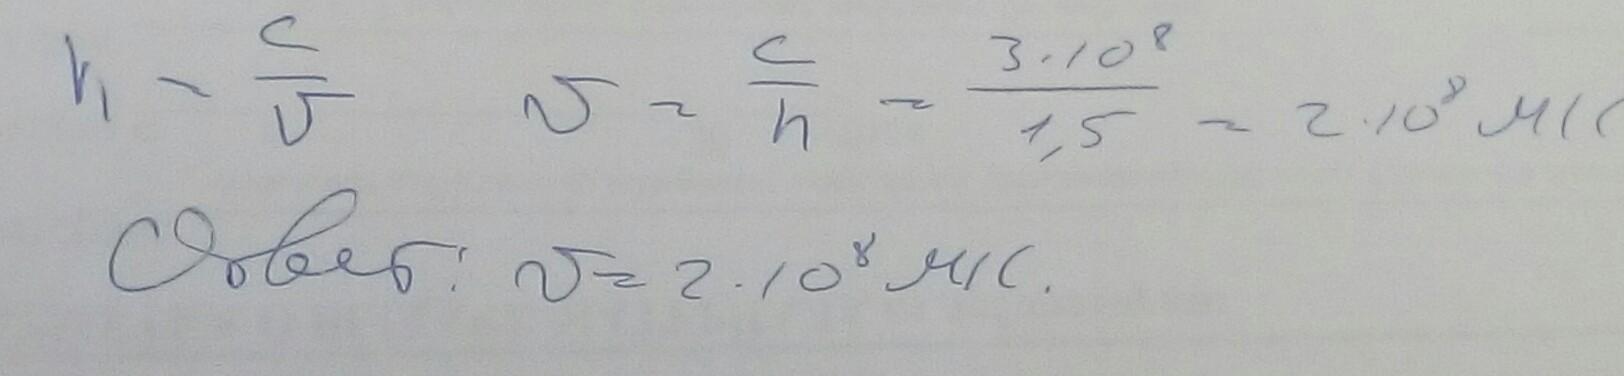 n = c/υ υ = c/n = 3·10⁸/1,5 = 2·10⁸ м/с
Ответ: υ = 2·10⁸ м/с.